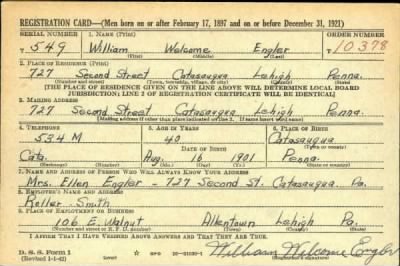 REGISTRATION CARD—(Men born on or after February 17, 1897 and on or before December 31, 1921)
SERIAL NUMBER 1. NAME (Print) ORDER NUMBER
T 549 William Welcome Engler T 10378
(First) (Middle) (Last)
2. PLACE OF RESIDENCE (Print)
727 Second Street Catasauqua Lehigh Penna.
(Number and street) (Town, township, village, or city) (County) (State)
[THE PLACE OF RESIDENCE GIVEN ON THE LINE ABOVE WILL DETERMINE LOCAL BOARD
JURISDICTION; LINE 2 OF REGISTRATION CERTIFICATE WILL BE IDENTICAL]
3. MAILING ADDRESS
727 Second Street Catasauqua Lehigh Penna
[Mailing address if other than place indicated on line 2. If same insert word same]
4. TELEPHONE 5. AGE IN YEARS 6. PLACE OF BIRTH
534 M 40 Catasauqua
DATE OF BIRTH (Town or county)
Cata. Aug. 16 1901 Penna.
(Exchange) (Number) (Mo.) (Day) (Yr.) (State or country)
7. NAME AND ADDRESS OF PERSON WHO WILL ALWAYS KNOW YOUR ADDRESS
Mrs. Ellen Engler - 727 Second St. Catasauqua Pa.
8. EMPLOYER'S NAME AND ADDRESS
Roller-Smith
9. PLACE OF EMPLOYMENT OR BUSINESS
106 E. Walnut Allentown Lehigh Pa.
(Number and street or R. F. D. number) (Town) (County) (State)
I AFFIRM THAT I HAVE VERIFIED ABOVE ANSWERS AND THAT THEY ARE TRUE.
D. S. S. Form 1
(Revised 1-1-42) (over) William Welcome Engler